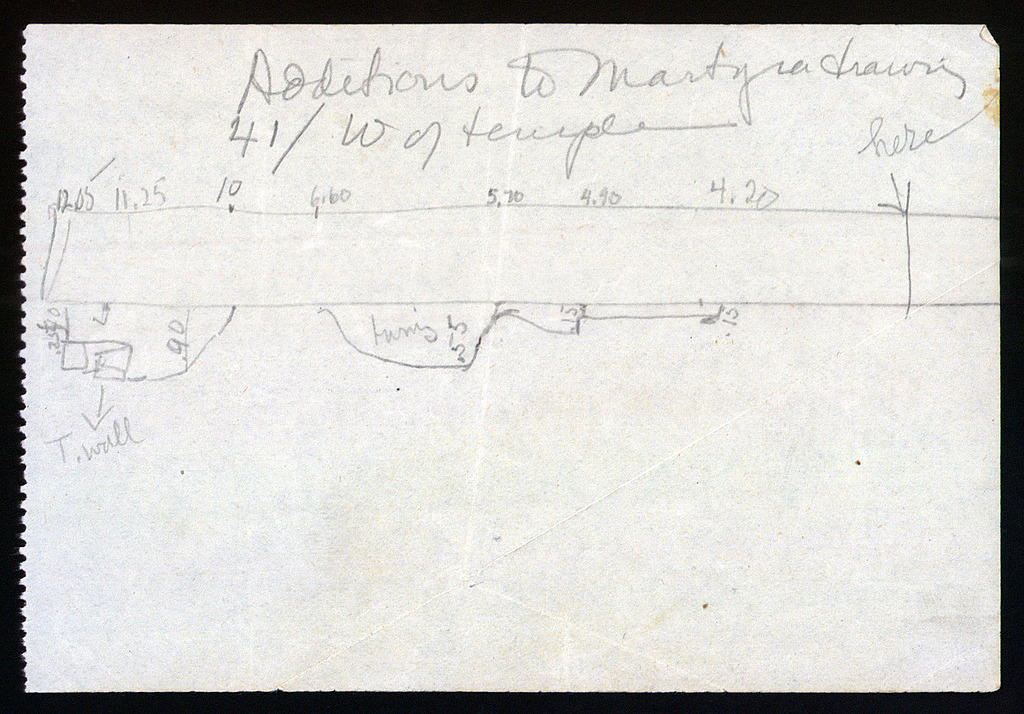 Additions to Martyra drawing
41/ W of temple
here
12.05 11.25 10 6.60 5.70 4.90 4.20
.90 .55 .15 .15
T. wall